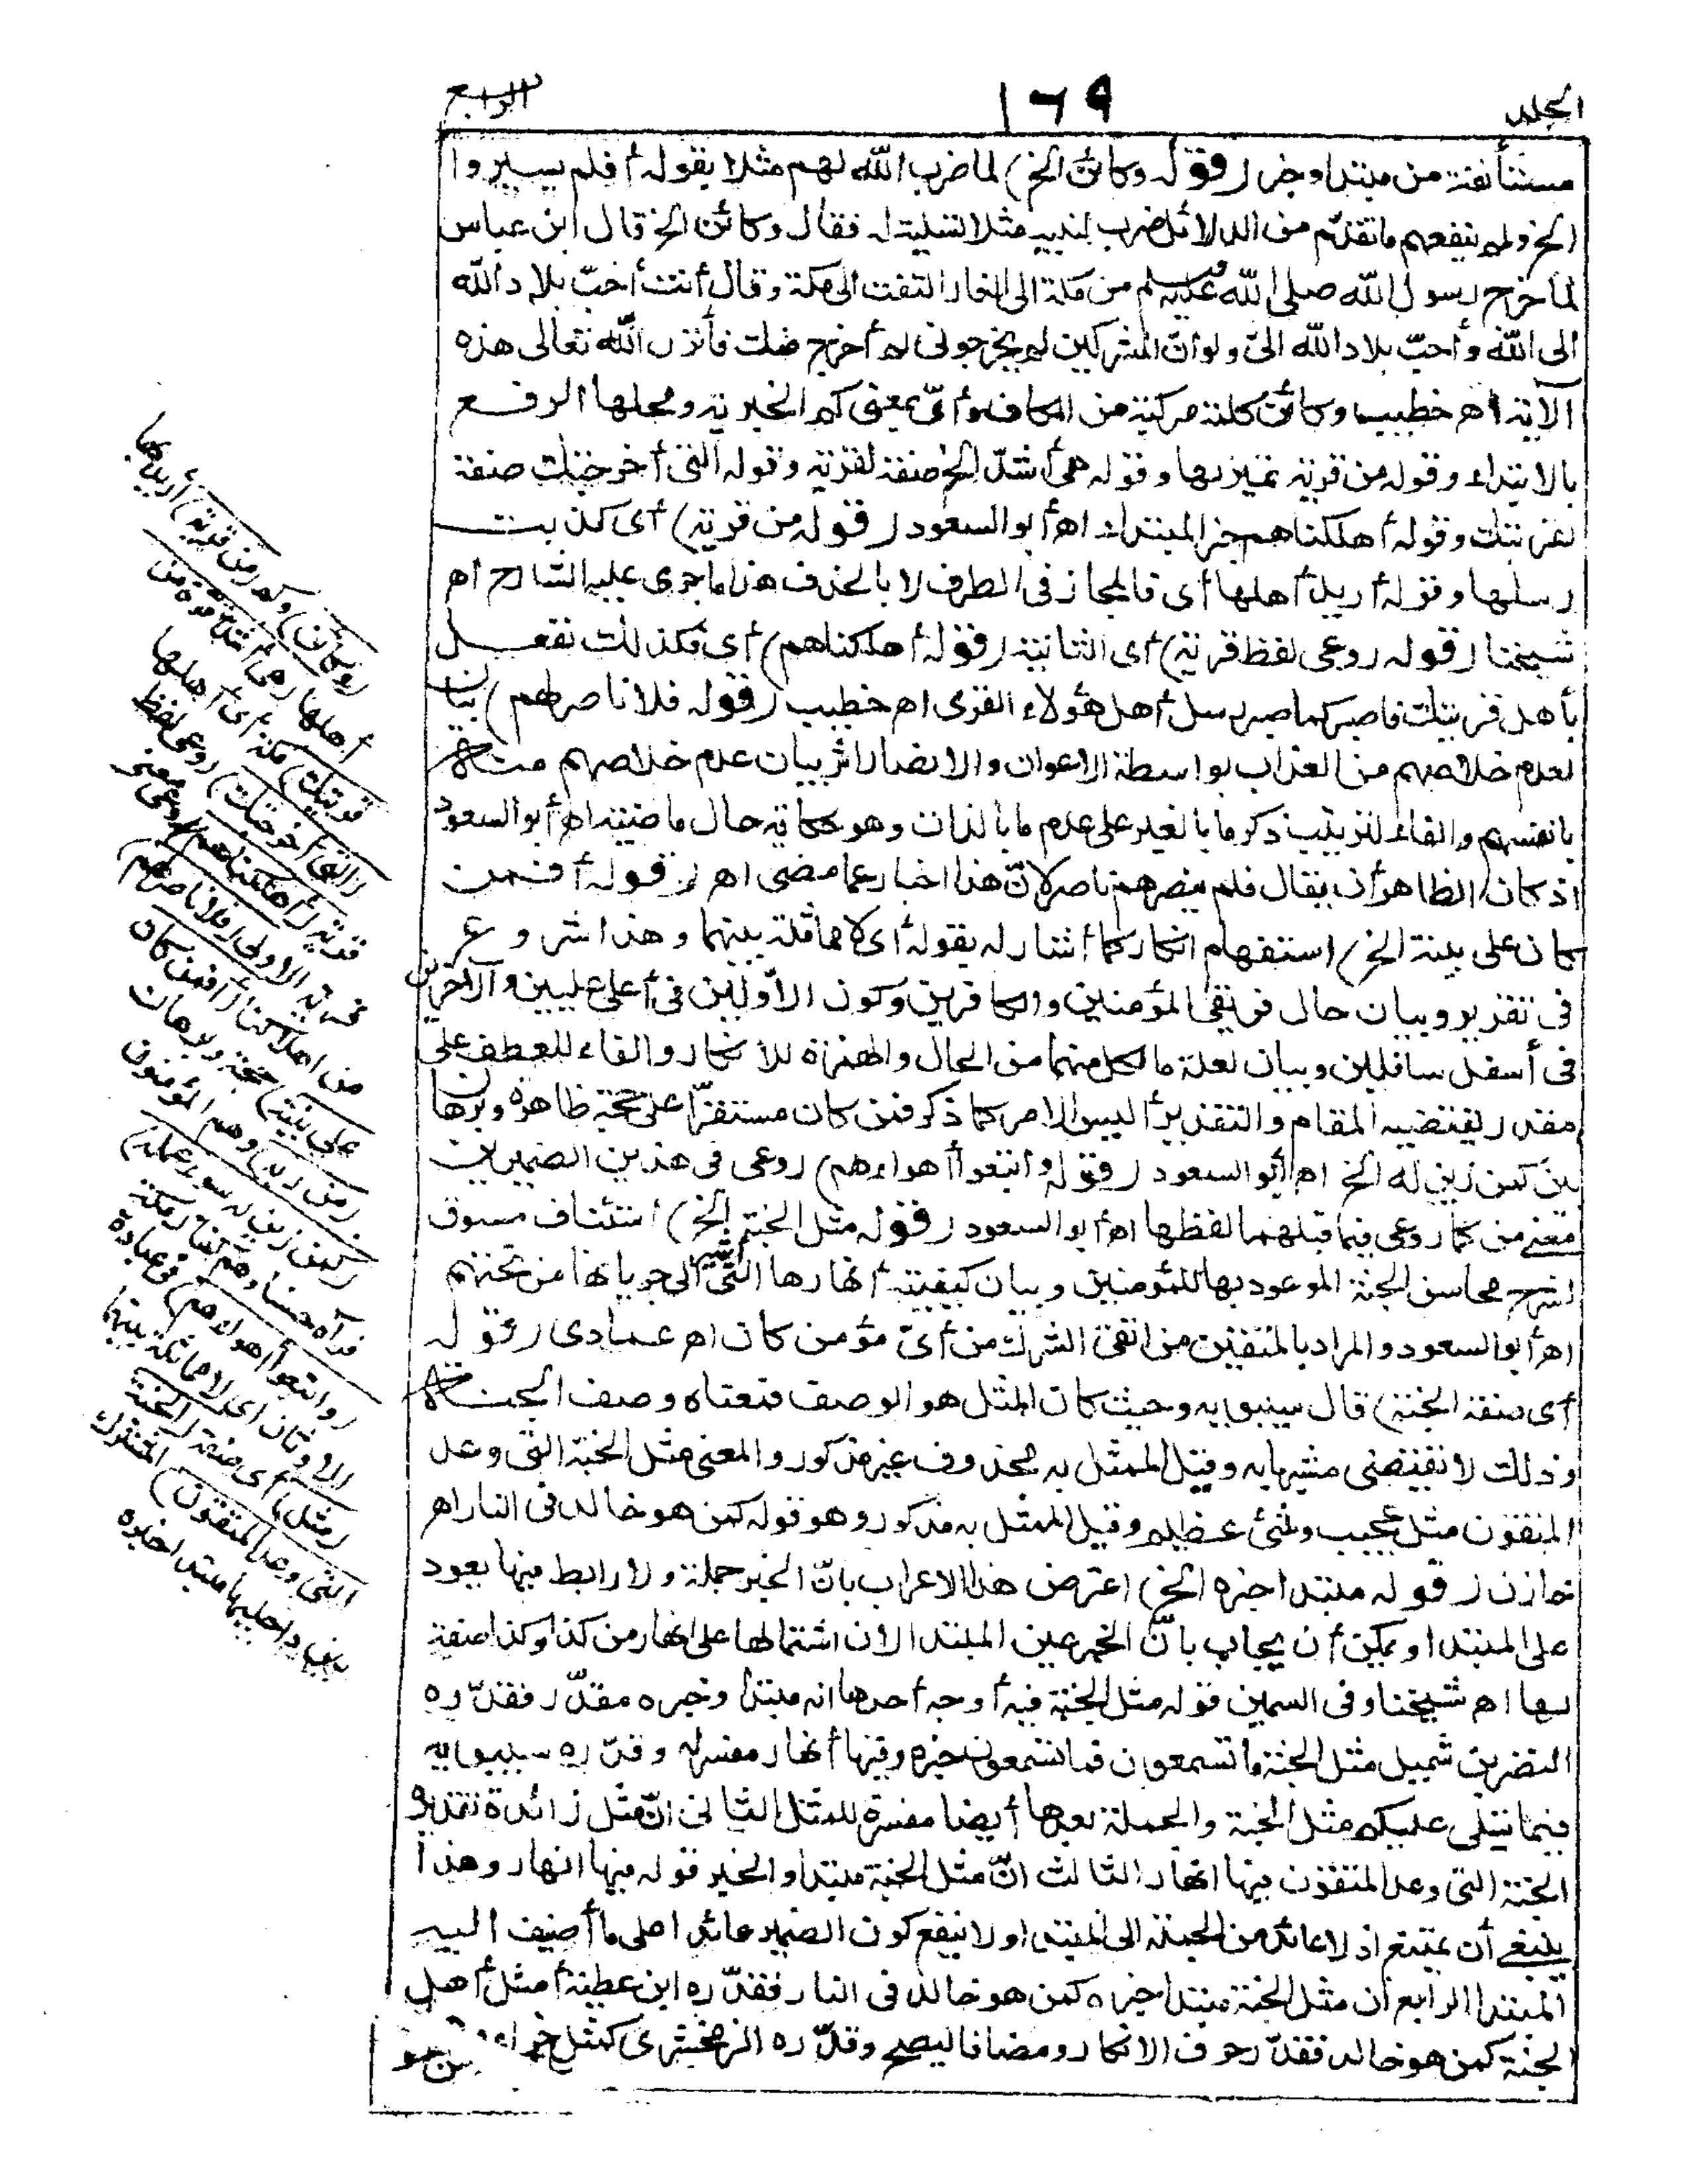 المجلد
١٦٩
الرابع
مستأنفة من مبتدا وخبر (قوله وكائن الخ) لما ضرب الله لهم مثلا بقوله أفلم يسيروا
الخ ولم ينفعهم ما تقدّم من الدلائل ضرب لنبيه مثلا تسلية له فقال وكائن الخ قال ابن عباس
لما خرج رسول الله صلى الله عليه وسلم من مكة الى الغار التفت الى مكة وقال أنت أحبّ بلاد الله
الى الله وأحبّ بلاد الله الىّ ولو أنّ المشركين لم يخرجونى لم أخرج منك فأنزل الله تعالى هذه
الآية اه خطيب وكائن كلمة مركبة من الكاف وأىّ بمعنى كم الخبرية ومحلها الرفع
بالابتداء وقوله من قرية تمييز لها وقوله هى أشدّ الخ صفة لقرية وقوله التى أخرجتك صفة
لقريتك وقوله أهلكناهم خبر المبتداء اه أبو السعود (قوله من قرية) أى كذبت
رسلها وقوله أريد أهلها أى فالمجاز فى الطرف لا بالحذف هذا ما جرى عليه الشارح اه
شيخنا (قوله روعى لفظ قرية) أى الثانية (قوله أهلكناهم) أى فكذلك نفعل
بأهل قريتك فاصبر كما صبر رسل أهل هؤلاء القرى اه خطيب (قوله فلا ناصر لهم) بيان
لعدم خلاصهم من العذاب بواسطة الاعوان والانصار اثر بيان عدم خلاصهم منه
بانفسهم والفاء لترتيب ذكر ما بالغير على عدم ما بالذات وهو حكاية حال ماضية اه أبو السعود
اذ كان الظاهر أن يقال فلم ينصرهم ناصر لانّ هذا اخبار عما مضى اه (قوله أفمن
كان على بينة الخ) استفهام انكار كما أشار له بقوله أى لا مماثلة بينهما وهذا شروع
فى تقرير وبيان حال فريقى المؤمنين والكافرين وكون الأوّلين فى أعلى عليين والآخرين
فى أسفل سافلين وبيان لعلة ما لكل منهما من الحال والهمزة للانكار والفاء للعطف على
مقدر يقتضيه المقام والتقدير أليس الامر كما ذكر فمن كان مستقرّا على حجة ظاهرة وبرهان
كمن زين له الخ اه أبو السعود (قوله واتبعوا أهواءهم) روعى فى هذين الضميرين
معنى من كما روعى فيما قبلهما لفظها اه أبو السعود (قوله مثل الجنة الخ) استئناف مسوق
لشرح محاسن الجنة الموعود بها للمؤمنين وبيان كيفية أنهارها التى أشير الى جريانها من تحتهم
اه أبو السعود والمراد بالمتقين من اتقى الشرك من أىّ مؤمن كان اه عمادى (قوله
أى صفة الجنة) قال سيبويه وحيث كان المثل هو الوصف فمعناه وصف الجنة
وذلك لا يقتضى مشبها به وقيل الممثل به محذوف غير مذكور والمعنى مثل الجنة التى وعد
المتقون مثل عجيب وشئ عظيم وقيل الممثل به مذكور وهو قوله كمن هو خالد فى النار اه
خازن (قوله مبتدا خبره الخ) اعترض هذا الاعراب بانّ الخبر جملة ولا رابط فيها يعود
على المبتدا ويمكن أن يجاب بانّ الخبر عين المبتدا لان اشتمالها على انهار من كذا وكذا صفة
لها اه شيخنا وفى السمين قوله مثل الجنة فيه أوجه أحدها انه مبتدا وخبره مقدّر فقدّره
النضر بن شميل مثل الجنة ما تسمعون فما تسمعون خبره وفيها أنهار مفسر له وقدّره سيبويه
فيما يتلى عليكم مثل الجنة والجملة بعدها أيضا مفسرة للمثل الثانى انّ مثل زائدة تقديره
الجنة التى وعد المتقون فيها انهار الثالث انّ مثل الجنة مبتدا والخبر قوله فيها انهار وهذا
ينبغى أن يمتنع اذ لا عائد من الجملة الى المبتدا ولا ينفع كون الضمير عائدا على ما أضيف اليه
المبتدا الرابع أن مثل الجنة مبتدا خبره كمن هو خالد فى النار فقدّره ابن عطية أمثل أهل
الجنة كمن هو خالد فقدّر حرف الانكار ومضافا ليصح وقدّره الزمخشرى كمثل جزاء من هو
(وكائن) وكم (من قرية) أريد بها
أهلها (هى أشد قوة من
قريتك) مكة أى أهلها
(التى أخرجتك) روعى لفظ
قرية (أهلكناهم) روعى معنى
قرية الاولى (فلا ناصر لهم)
من اهلاكنا (أفمن كان
على بينة) حجة وبرهان
(من ربه) وهم المؤمنون
(كمن زين له سوء عمله)
فرآه حسنا وهم كفار مكة
(واتبعوا أهواءهم) فى عبادة
الاوثان أى لا مماثلة بينهما
(مثل) أى صفة (الجنة
التى وعد المتقون) المشتركة
بين داخليها مبتدا خبره